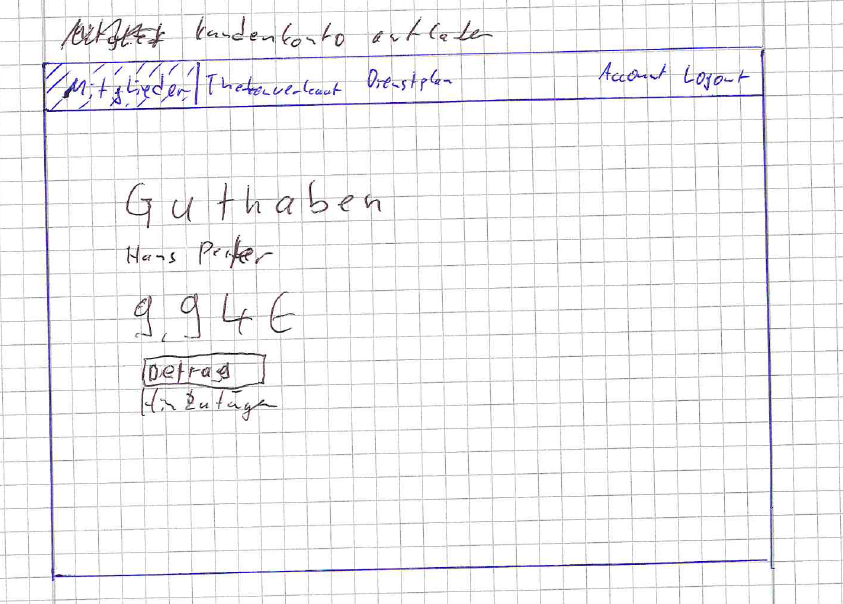 Kundenkonto aufladen
Mitglieder Thekenverkauf Dienstplan Account Logout
Guthaben
Hans Peter
9,94€
Betrag
Hinzufügen